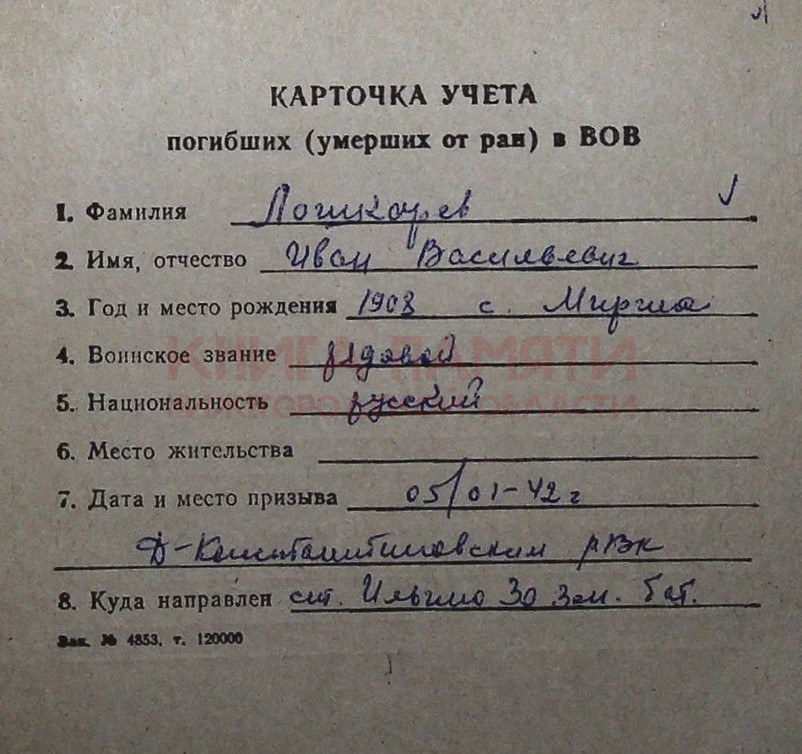 КАРТОЧКА УЧЕТА
погибших (умерших от ран) в ВОВ
1. Фамилия Логикарев
2. Имя, отчество Иван Васильевич
3. Год и место рождения 1908 с.
4. Воинское звание рядовой
5. Национальность русский
6. Место жительства
7. Дата и место призыва 05/01-42 г
Д-Константиновским РВК
8. Куда направлен ст. 30 Зап. бат.
Зак. № 4853, т. 120000
КНИГА ПАМЯТИ
НИЖЕГОРОДСКОЙ ОБЛАСТИ